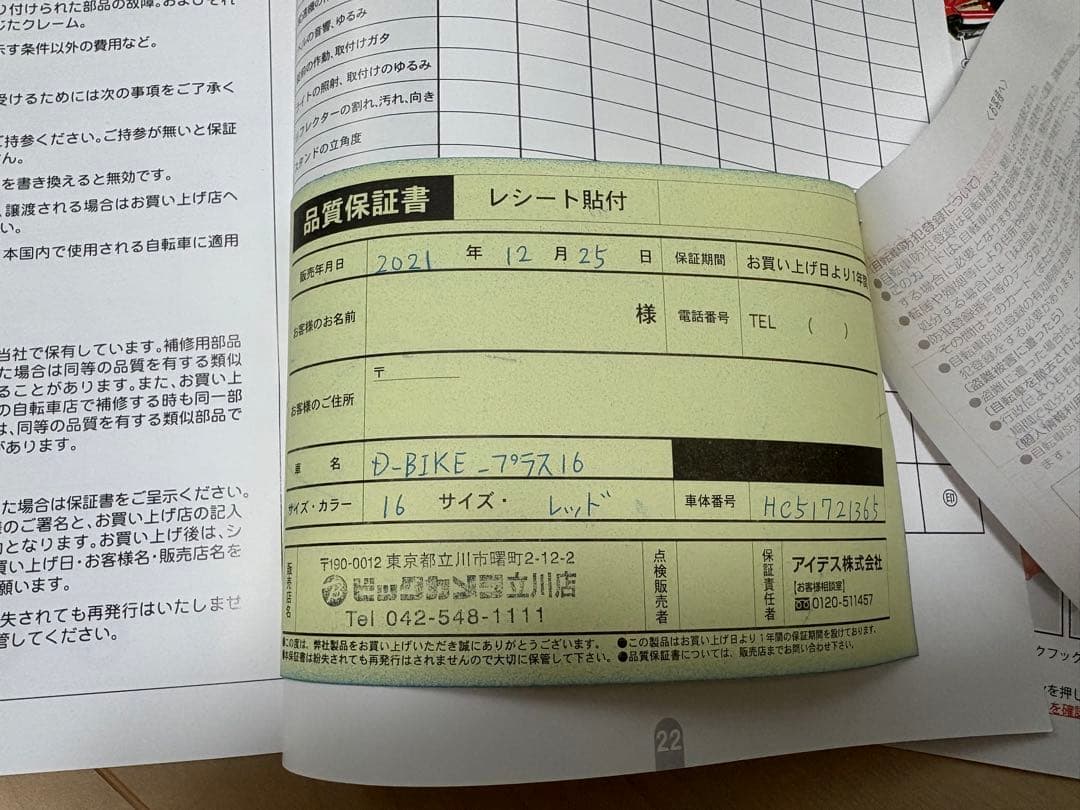 り付けられた部品の故障。およびそれ
じたクレーム。
示す条件以外の費用など。
受けるためには次の事項をご了承く
ご持参ください。ご持参が無いと保証
ん。
を書き換えると無効です。
譲渡される場合はお買い上げ店へ
い。
本国内で使用される自転車に適用
当社で保有しています。補修用部品
た場合は同等の品質を有する類似
ることがあります。また、お買い上
の自転車店で補修する時も同一部
は、同等の品質を有する類似部品で
があります。
た場合は保証書をご呈示ください。
様のご署名と、お買い上げ店の記入
りとなります。お買い上げ後は、シ
買い上げ日・お客様名・販売店名を
願います。
失されても再発行はいたしませ
管してください。
ルの音響、ゆるみ
の作動、取付けガタ
イトの照射、取付けのゆるみ
フレクターの割れ、汚れ、向き
スタンドの立角度
品質保証書 レシート貼付
販売年月日 2021 年 12 月 25 日 保証期間 お買い上げ日より1年間
お客様のお名前 様 電話番号 TEL ( )
お客様のご住所 〒
車名 D-BIKE-プラス16
サイズ・カラー 16 サイズ・ レッド 車体番号 HC51721365
販売店名 〒190-0012 東京都立川市曙町2-12-2
ビックカメラ立川店
Tel 042-548-1111
点検販売者
保証責任者 アイデス株式会社
[お客様相談室]
0120-511457
●この度は、弊社製品をお買い上げいただき誠にありがとうございます。 ●この製品はお買い上げ日より1年間の保証期間を設けております。
●本保証書は紛失されても再発行はされませんので大切に保管して下さい。 ●品質保証書については、販売店までお問い合わせ下さい。
印
22
クフック
を押し
を確認